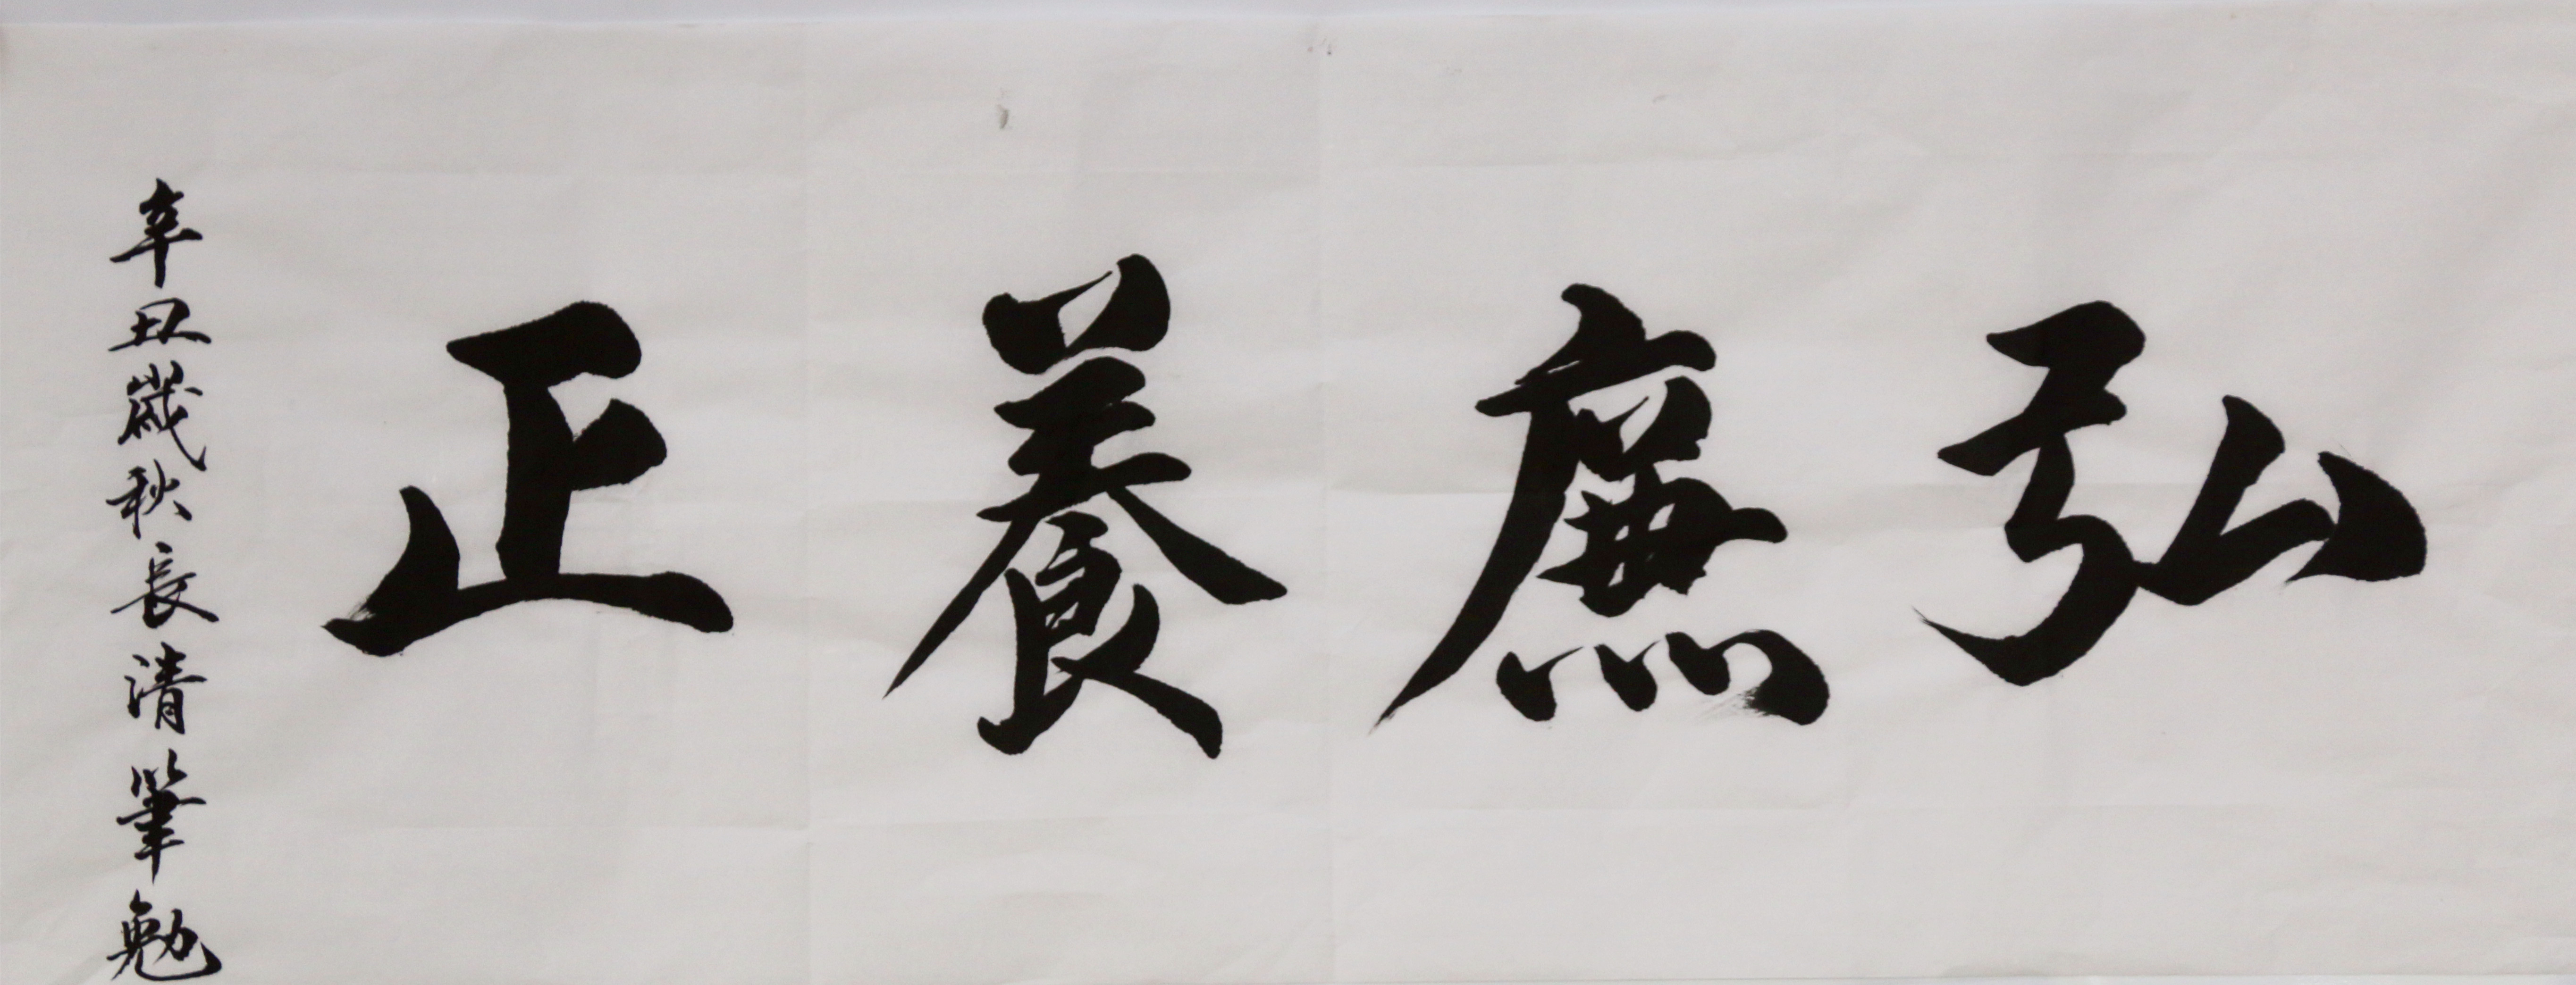 弘廉養正
辛丑歲秋長清筆勉